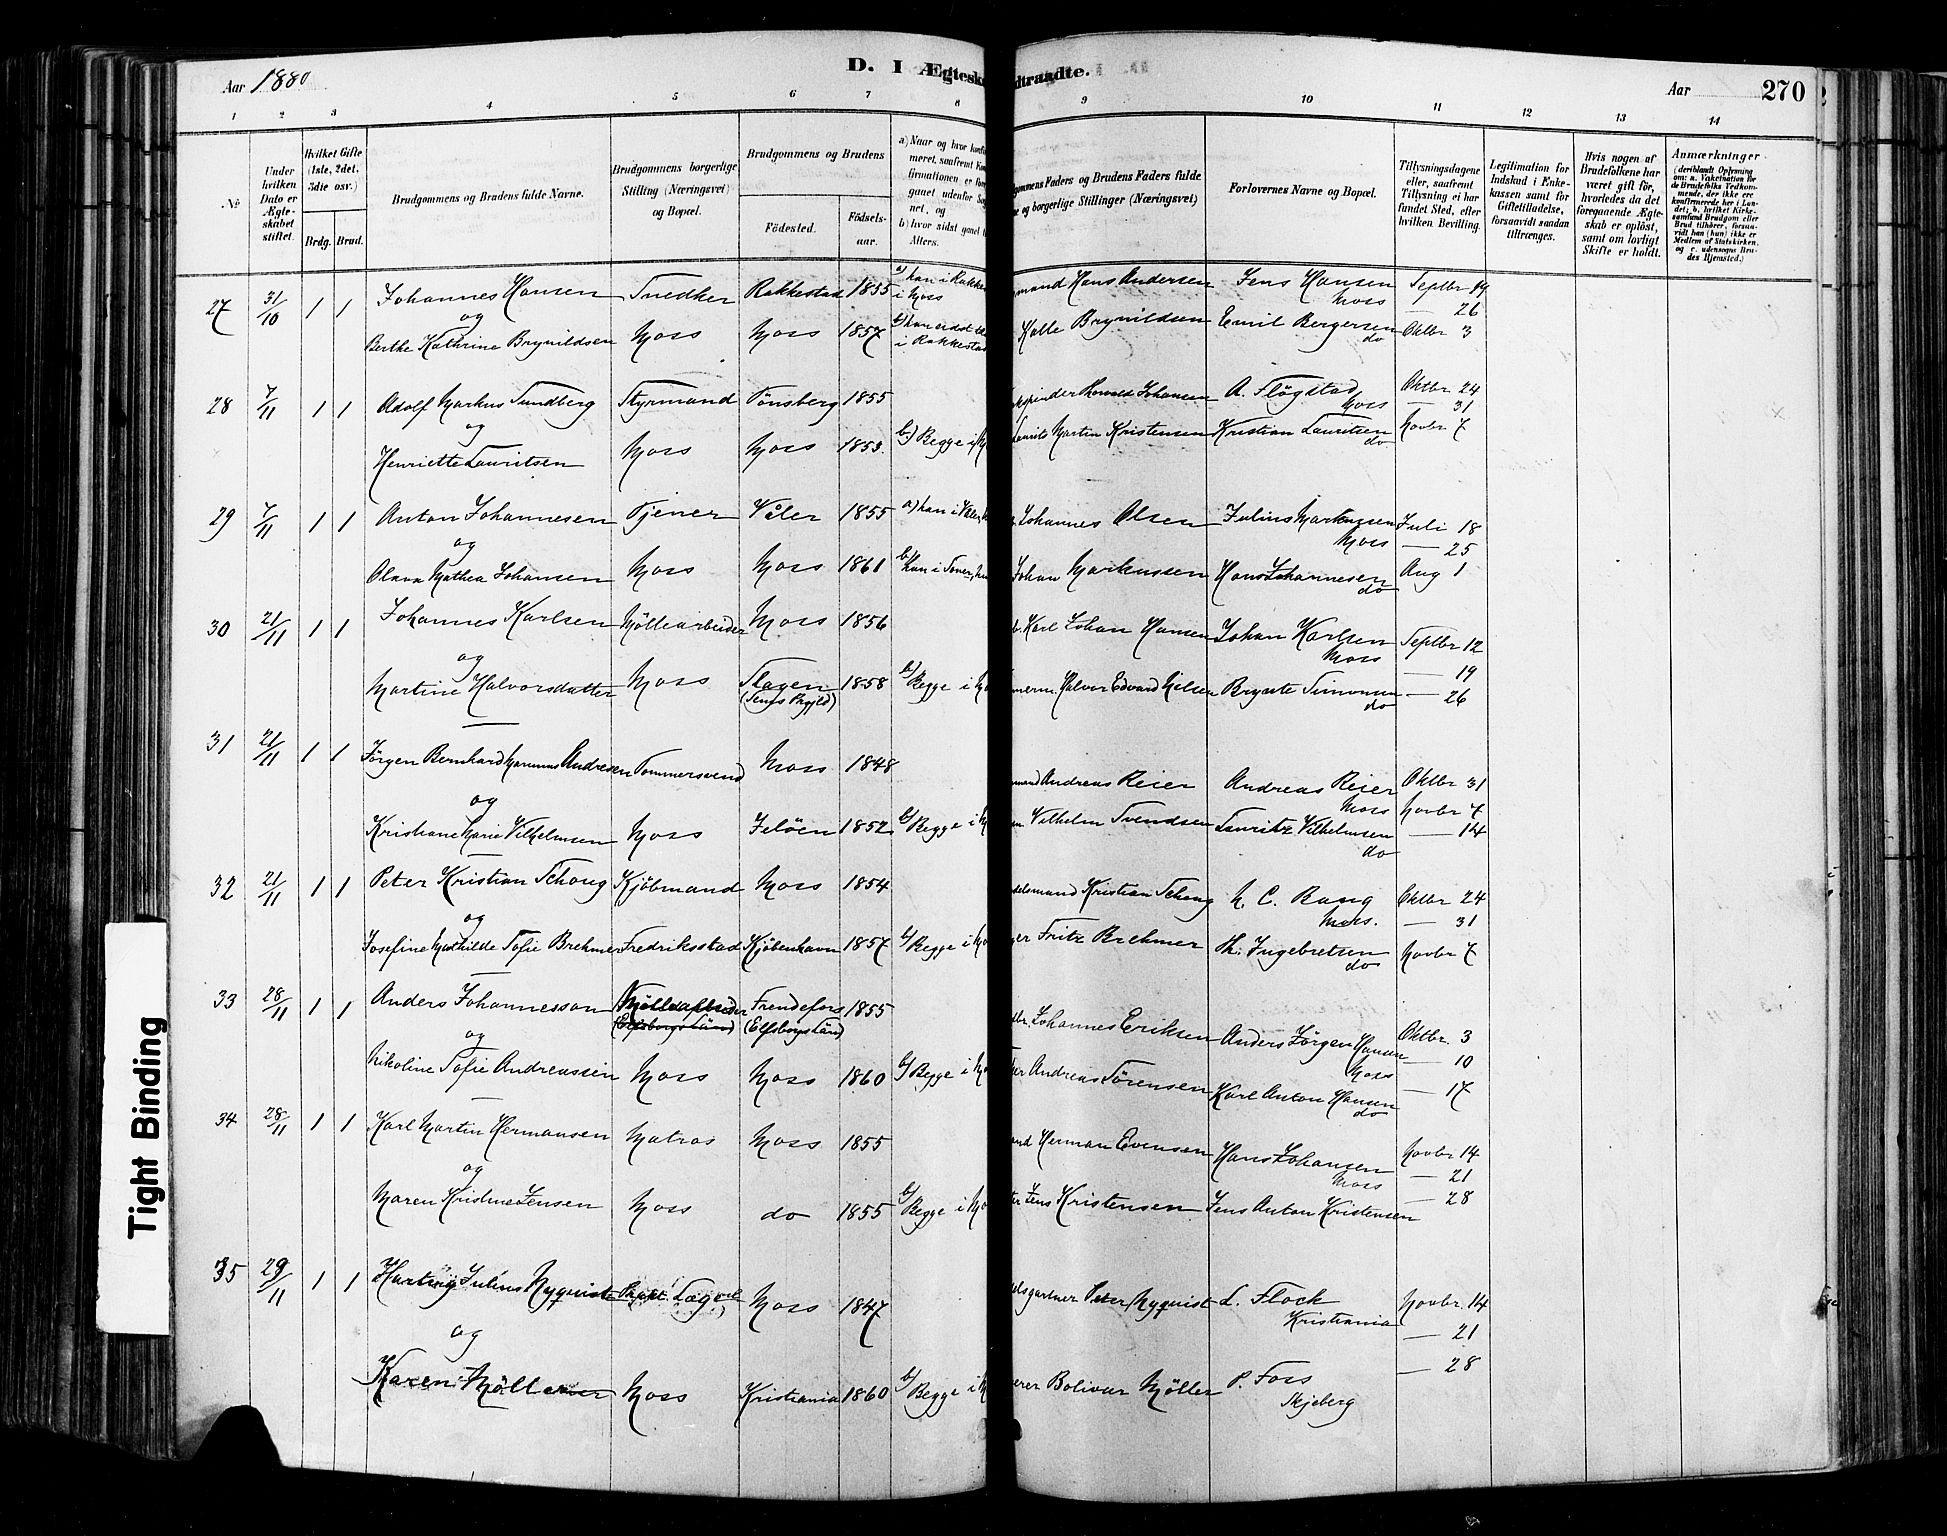 Aar 1880
D. I Ægtesk
dtraadte.
Aar
270
1 2 3 4 5 6 7 8 9 10 11 12 13 14
No
Under hvilken Dato er Ægteskabet stiftet.
Hvilket Gifte (1ste, 2det, 3die osv.)
Brdg. Brud.
Brudgommens og Brudens fulde Navne.
Brudgommens borgerlige Stilling (Næringsvei) og Bopæl.
Brudgommens og Brudens
Fødested.
Fødselsaar.
gommens Faders og Brudens Faders fulde
ne og borgerlige Stillinger (Næringsvei)
Forlovernes Navne og Bopæl.
Tillysningsdagene eller, saafremt Tillysning ei har fundet Sted, efter hvilken Bevilling.
Legitimation for Indskud i Enkekassen samt for Giftetilladelse, forsaavidt saadan tiltrænges.
Hvis nogen af Brudefolkene har været gift før, hvorledes da det foregaaende Ægteskab er opløst, samt om lovligt Skifte er holdt.
Anmærkninger
27 31/10 1 1 Johannes Hansen Snedker Rakkestad 1855 mand Hans Andersen Jens Hansen Moss Septbr 19
— 26
og
Berthe Kathrine Brynildsen Moss Moss 1857 Kalle Brynildsen Emil Bergersen do Oktbr 3
28 7/11 1 1 Adolf Markus Sundberg Styrmand Tønsberg 1855 Johansen A. Fløgstad Moss Oktbr 24
— 31
og
Henriette Lauritsen Moss Moss 1853. b) Begge i M Laurits Martin Kristensen Kristian Lauritsen do Novbr 7
29 7/11 1 1 Anton Johannesen Tjener Våler 1855 Johannes Olsen Julius Markussen Moss Juli 18
— 25
og
Olava Mathea Johansen Moss Moss 1861 Johan Markussen Hans Johannesen do Aug 1
30 21/11 1 1 Johannes Karlsen Møllearbeider Moss 1856 b. Karl Johan Hansen Johan Karlsen Moss Septbr 12
— 19
og
Martine Halvorsdatter Moss Slagen 1858 b) Begge i Mo Halvor Edvard Nilsen Simonsen do — 26
31 21/11 1 1 Jørgen Bernhard Andresen Tømmersvend Moss 1848 mand Andreas Reier Andreas Reier Moss Oktbr 31
Novbr 7
og
Kristiane Marie Vilhelmsen Moss Jeløen 1852 b) Begge i M Vilhelm Svendsen Lauritz Vilhelmsen do — 14
32 21/11 1 1 Peter Kristian Schong Kjøbmand Moss 1854 delsmand Kristian Schong N. C. Bang Moss. Oktbr 24
— 31
og
Josefine Mathilde Sofie Brehmer Fredriksstad Kjøbenhavn 1857 b) Begge i Mo er Fritz Brehmer Th. Ingebretsen do Novbr 7
33 28/11 1 1 Anders Johannesson Møllearbeider (Elfsborgs Län) Frendefors (Elfsborgs Län) 1855 Johannes Eriksen Anders Jørgen Hansen Moss Oktbr. 3
— 10
og
Nikoline Sofie Andreassen Moss Moss 1860 b) Begge i Mo er Andreas Sørensen Karl Anton Hansen do — 17
34 28/11 1 1 Karl Martin Hermansen Matros Moss 1855 and Herman Evensen Hans Johansen Moss Novbr 14
— 21
og
Maren Kristine Jensen Moss do 1855 b) Begge i Mo ter Jens Kristensen Jens Anton Kristensen — 28
35 29/11 1 1 Hartvig Julius Nyquist Læge Moss 1847 gartner Peter Nyquist L. Flock Kristiania Novbr 14
— 21
og
Karen Møller Moss Kristiania 1860 b) Begge i M erer Bolivar Møller P. Foss Skjeberg — 28
Tight Binding